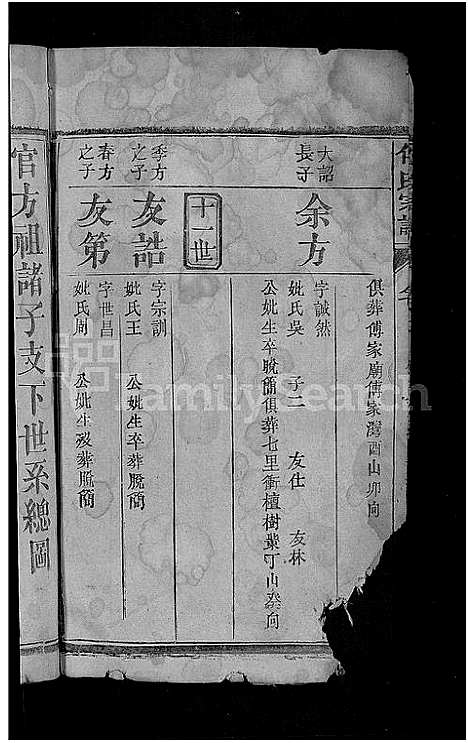 氏宗譜
俱葬傅家廟傅家灣酉山卯向
大詔
長子
余方
字誠然
妣氏吳 子二 友仕 友林
公妣生卒脫簡俱葬七里衝檀樹業丁山癸向
十一世
季方
之子
友誥
字宗訓
妣氏王 公妣生卒葬脫簡
春方
之子
友第
字世昌
妣氏周 公妣生殁葬脫簡
官方祖諸子支下世系總圖
FamilySearch